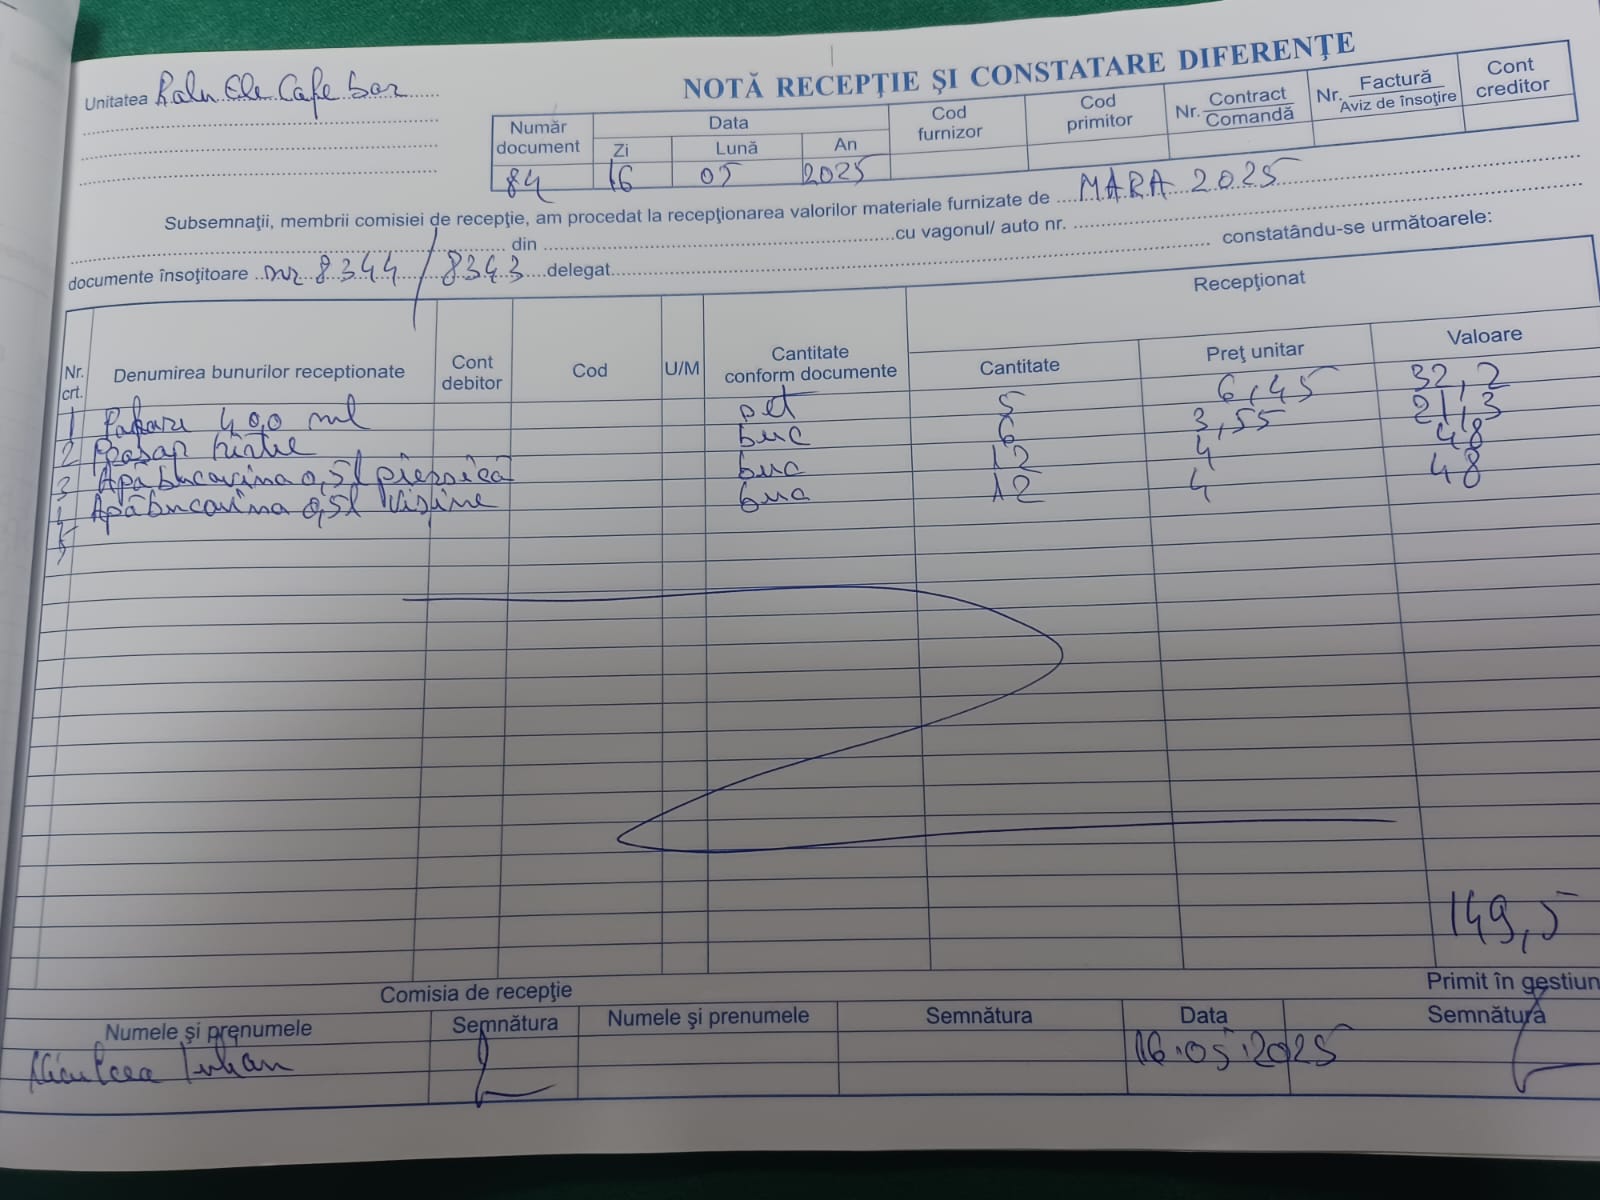 NOTĂ RECEPŢIE ŞI CONSTATARE DIFERENŢE
Unitatea Ralu Ele Cafe bar
Număr document
Data
Zi
Lună
An
Cod furnizor
Cod primitor
Nr. Contract Comandă
Nr. Factură Aviz de însoţire
Cont creditor
84 16 05 2025
Subsemnaţii, membrii comisiei de recepţie, am procedat la recepţionarea valorilor materiale furnizate de MARA 2025
din cu vagonul/ auto nr.
documente însoţitoare nr 8344 / 8343 delegat constatându-se următoarele:
Nr. crt.
Denumirea bunurilor receptionate
Cont debitor
Cod
U/M
Cantitate conform documente
Recepţionat
Cantitate
Preţ unitar
Valoare
1 Pahare 400 ml set 5 6,45 32,2
2 hîrtie buc 6 3,55 21,3
3 Apă bucovina 0,5l piersică buc 12 4 48
4 Apă bucovina 0,5l Vișine buc 12 4 48
5
149,5
Comisia de recepţie
Primit în gestiun
Numele şi prenumele
Semnătura
Numele şi prenumele
Semnătura
Data
Semnătura
Iulian 16.05.2025